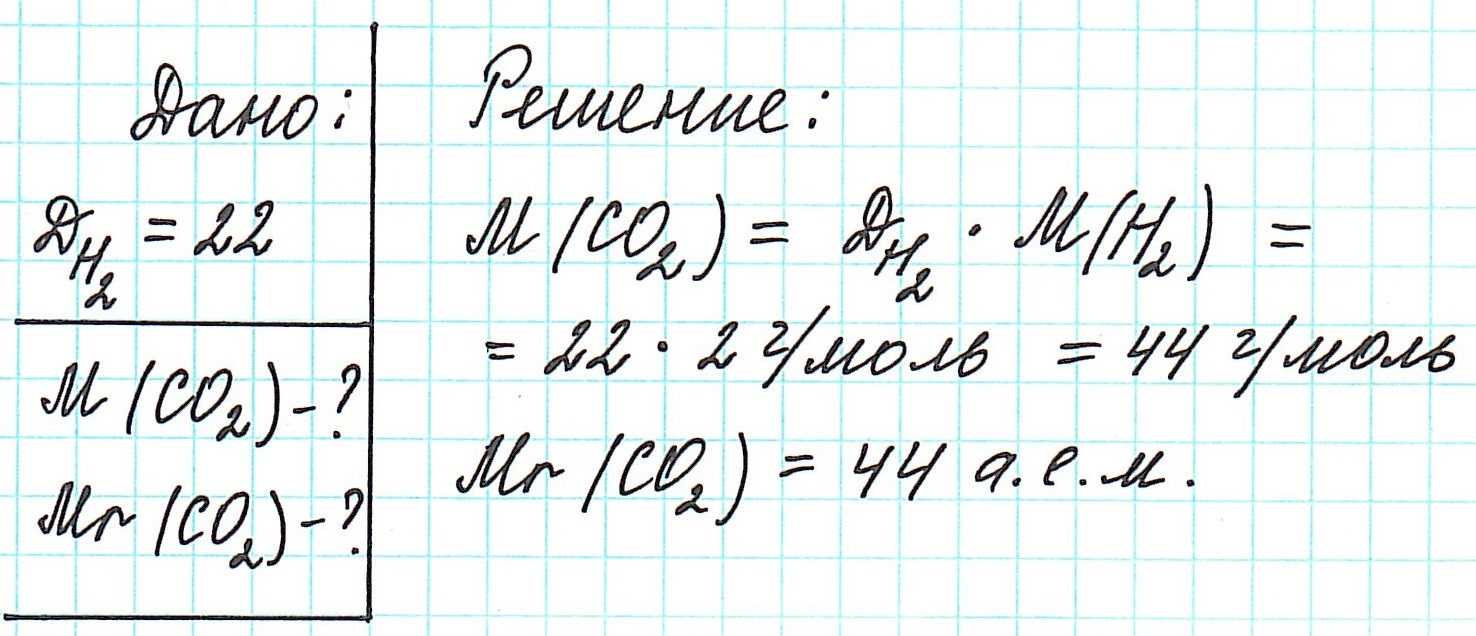 Дано:
D_H₂ = 22
M(CO₂) – ?
Mr(CO₂) – ?
Решение:
M(CO₂) = D_H₂ · M(H₂) =
= 22 · 2 г/моль = 44 г/моль
Mr(CO₂) = 44 а.е.м.